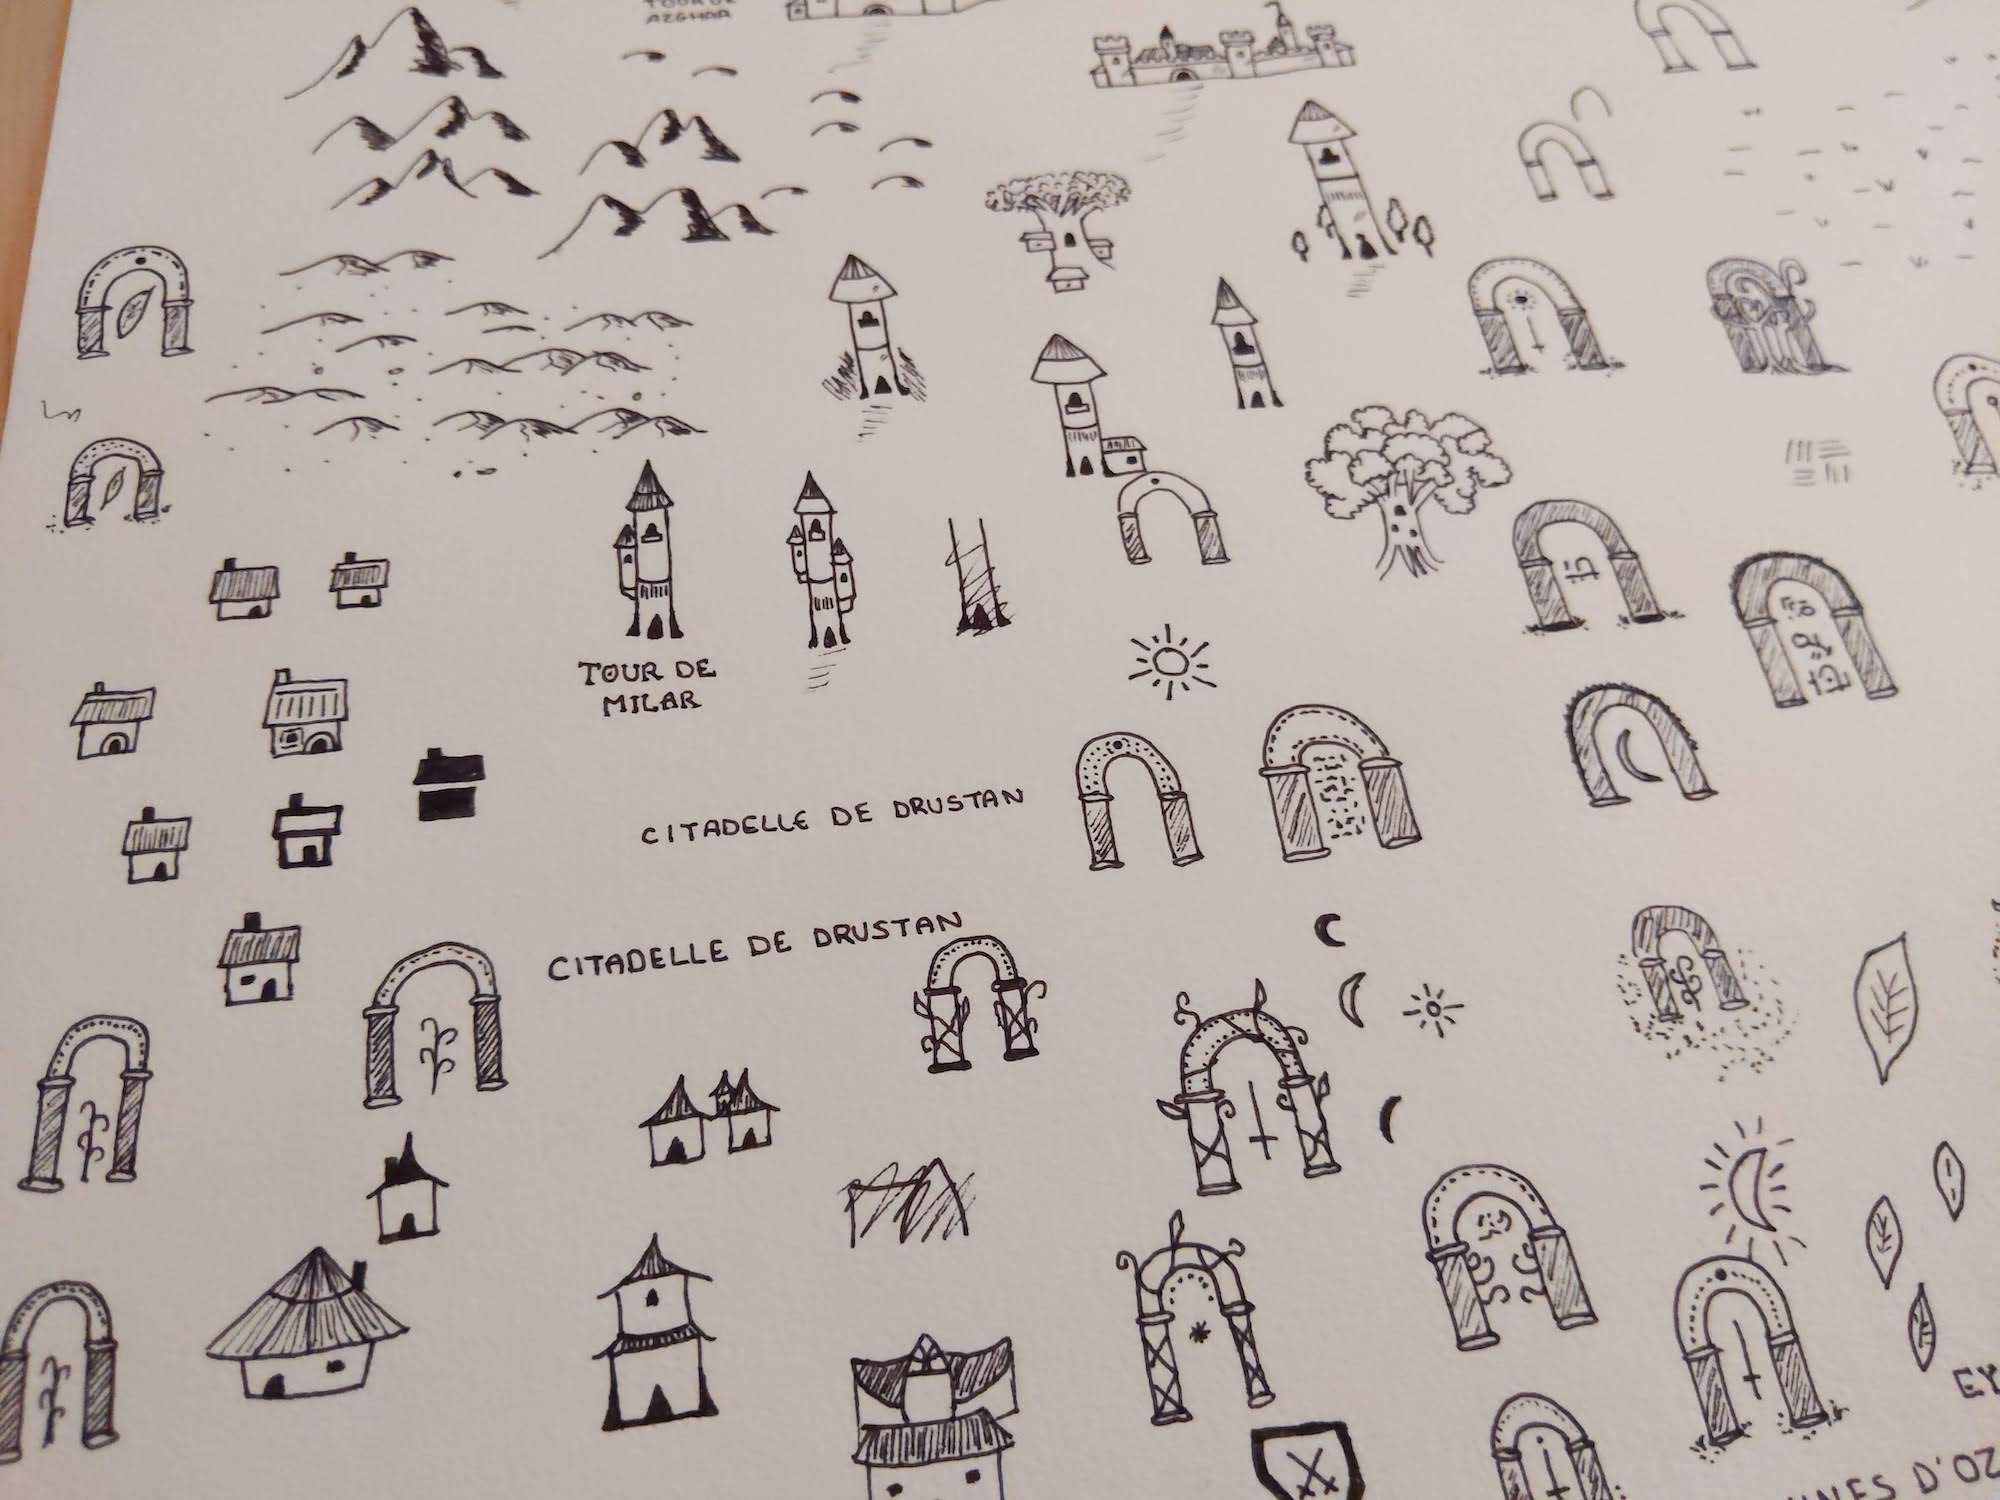 TOUR DE
AZGHAR
TOUR DE
MILAR
CITADELLE DE DRUSTAN
CITADELLE DE DRUSTAN
EY
D'OZ